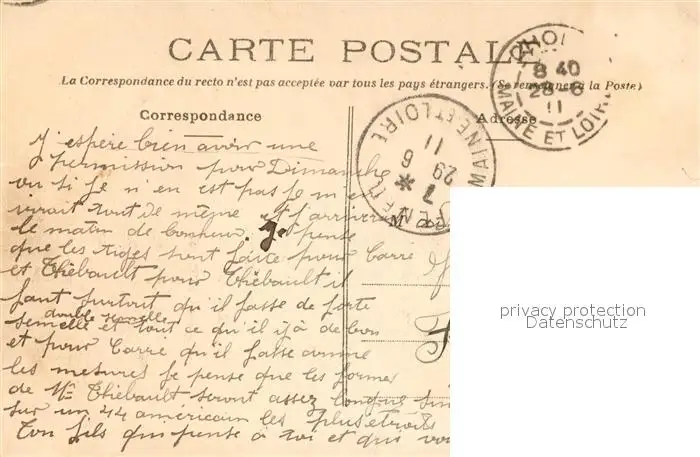 CARTE POSTALE
La Correspondance du recto n'est pas acceptée par tous les pays étrangers. (Se renseigner à la Poste)
Correspondance
Adresse
CHOL
8 40
28-6
11
MAINE ET LOIRE
MAINE ET LOIRE
7 *
29 6
11
J'espère bien avoir une
permission pour Dimanche
ou si je n'en est pas je m'en
irait tout de même et j'arriverai
le matin de bonheur. Je pense
que les tiges sont faite pour Carré
et Thébault pour Thébault il
faut surtout qu'il fasse de forte
double semelle
semelle et tout ce qu'il y a de bon
et pour Carré qu'il fasse comme
les mesures je pense que les formes
de Mr Thébault seront assez longue
sur un 44 américain les plus étroits
Ton fils qui pense à toi et qui
M
privacy protection
Datenschutz